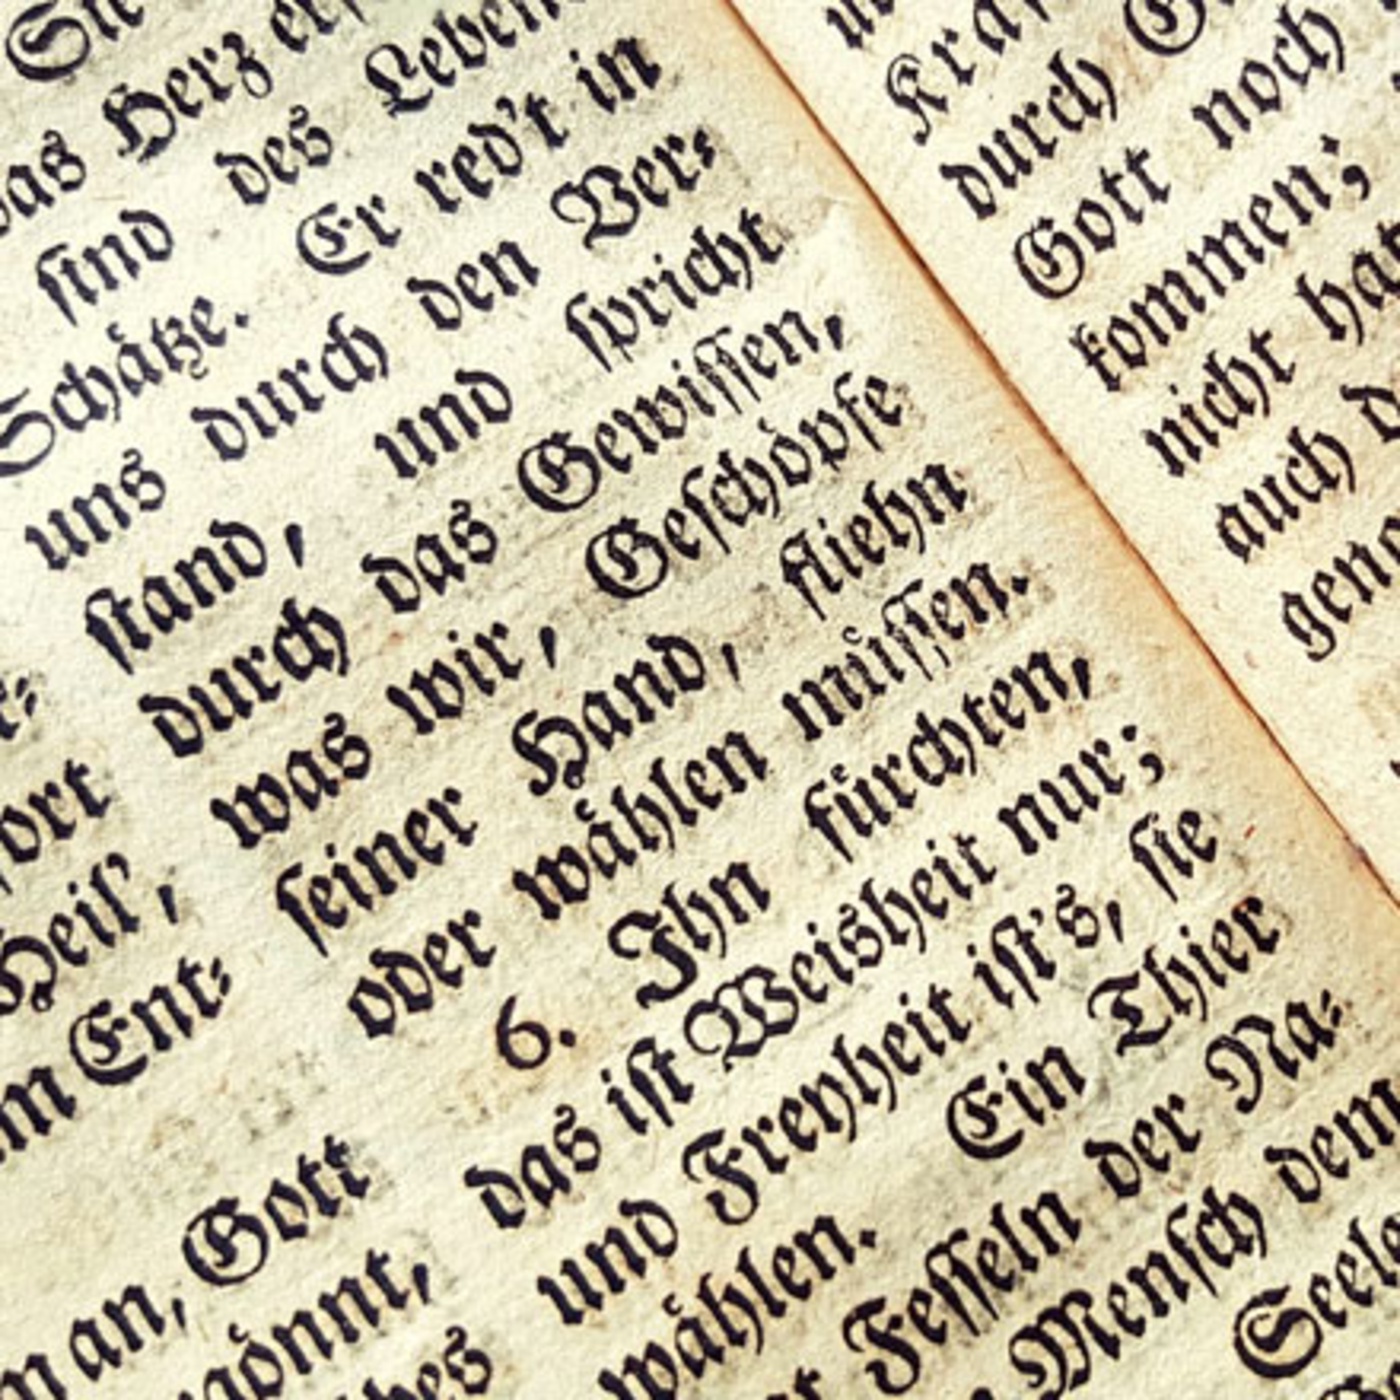 das Herz
sind des
Schätze. Er red't in
uns durch den Ver⸗
stand, und spricht
durch das Gewissen,
was wir, Geschöpfe
seiner Hand, fliehn
oder wählen müssen.
6. Ihn fürchten,
das ist Weisheit nur;
und Freyheit ist's, sie
wählen. Ein Thier
Fesseln der Na⸗
Mensch dem
Seele
Heil',
Ent⸗
an, Gott
durch
Gott noch
kommen;
nicht
auch